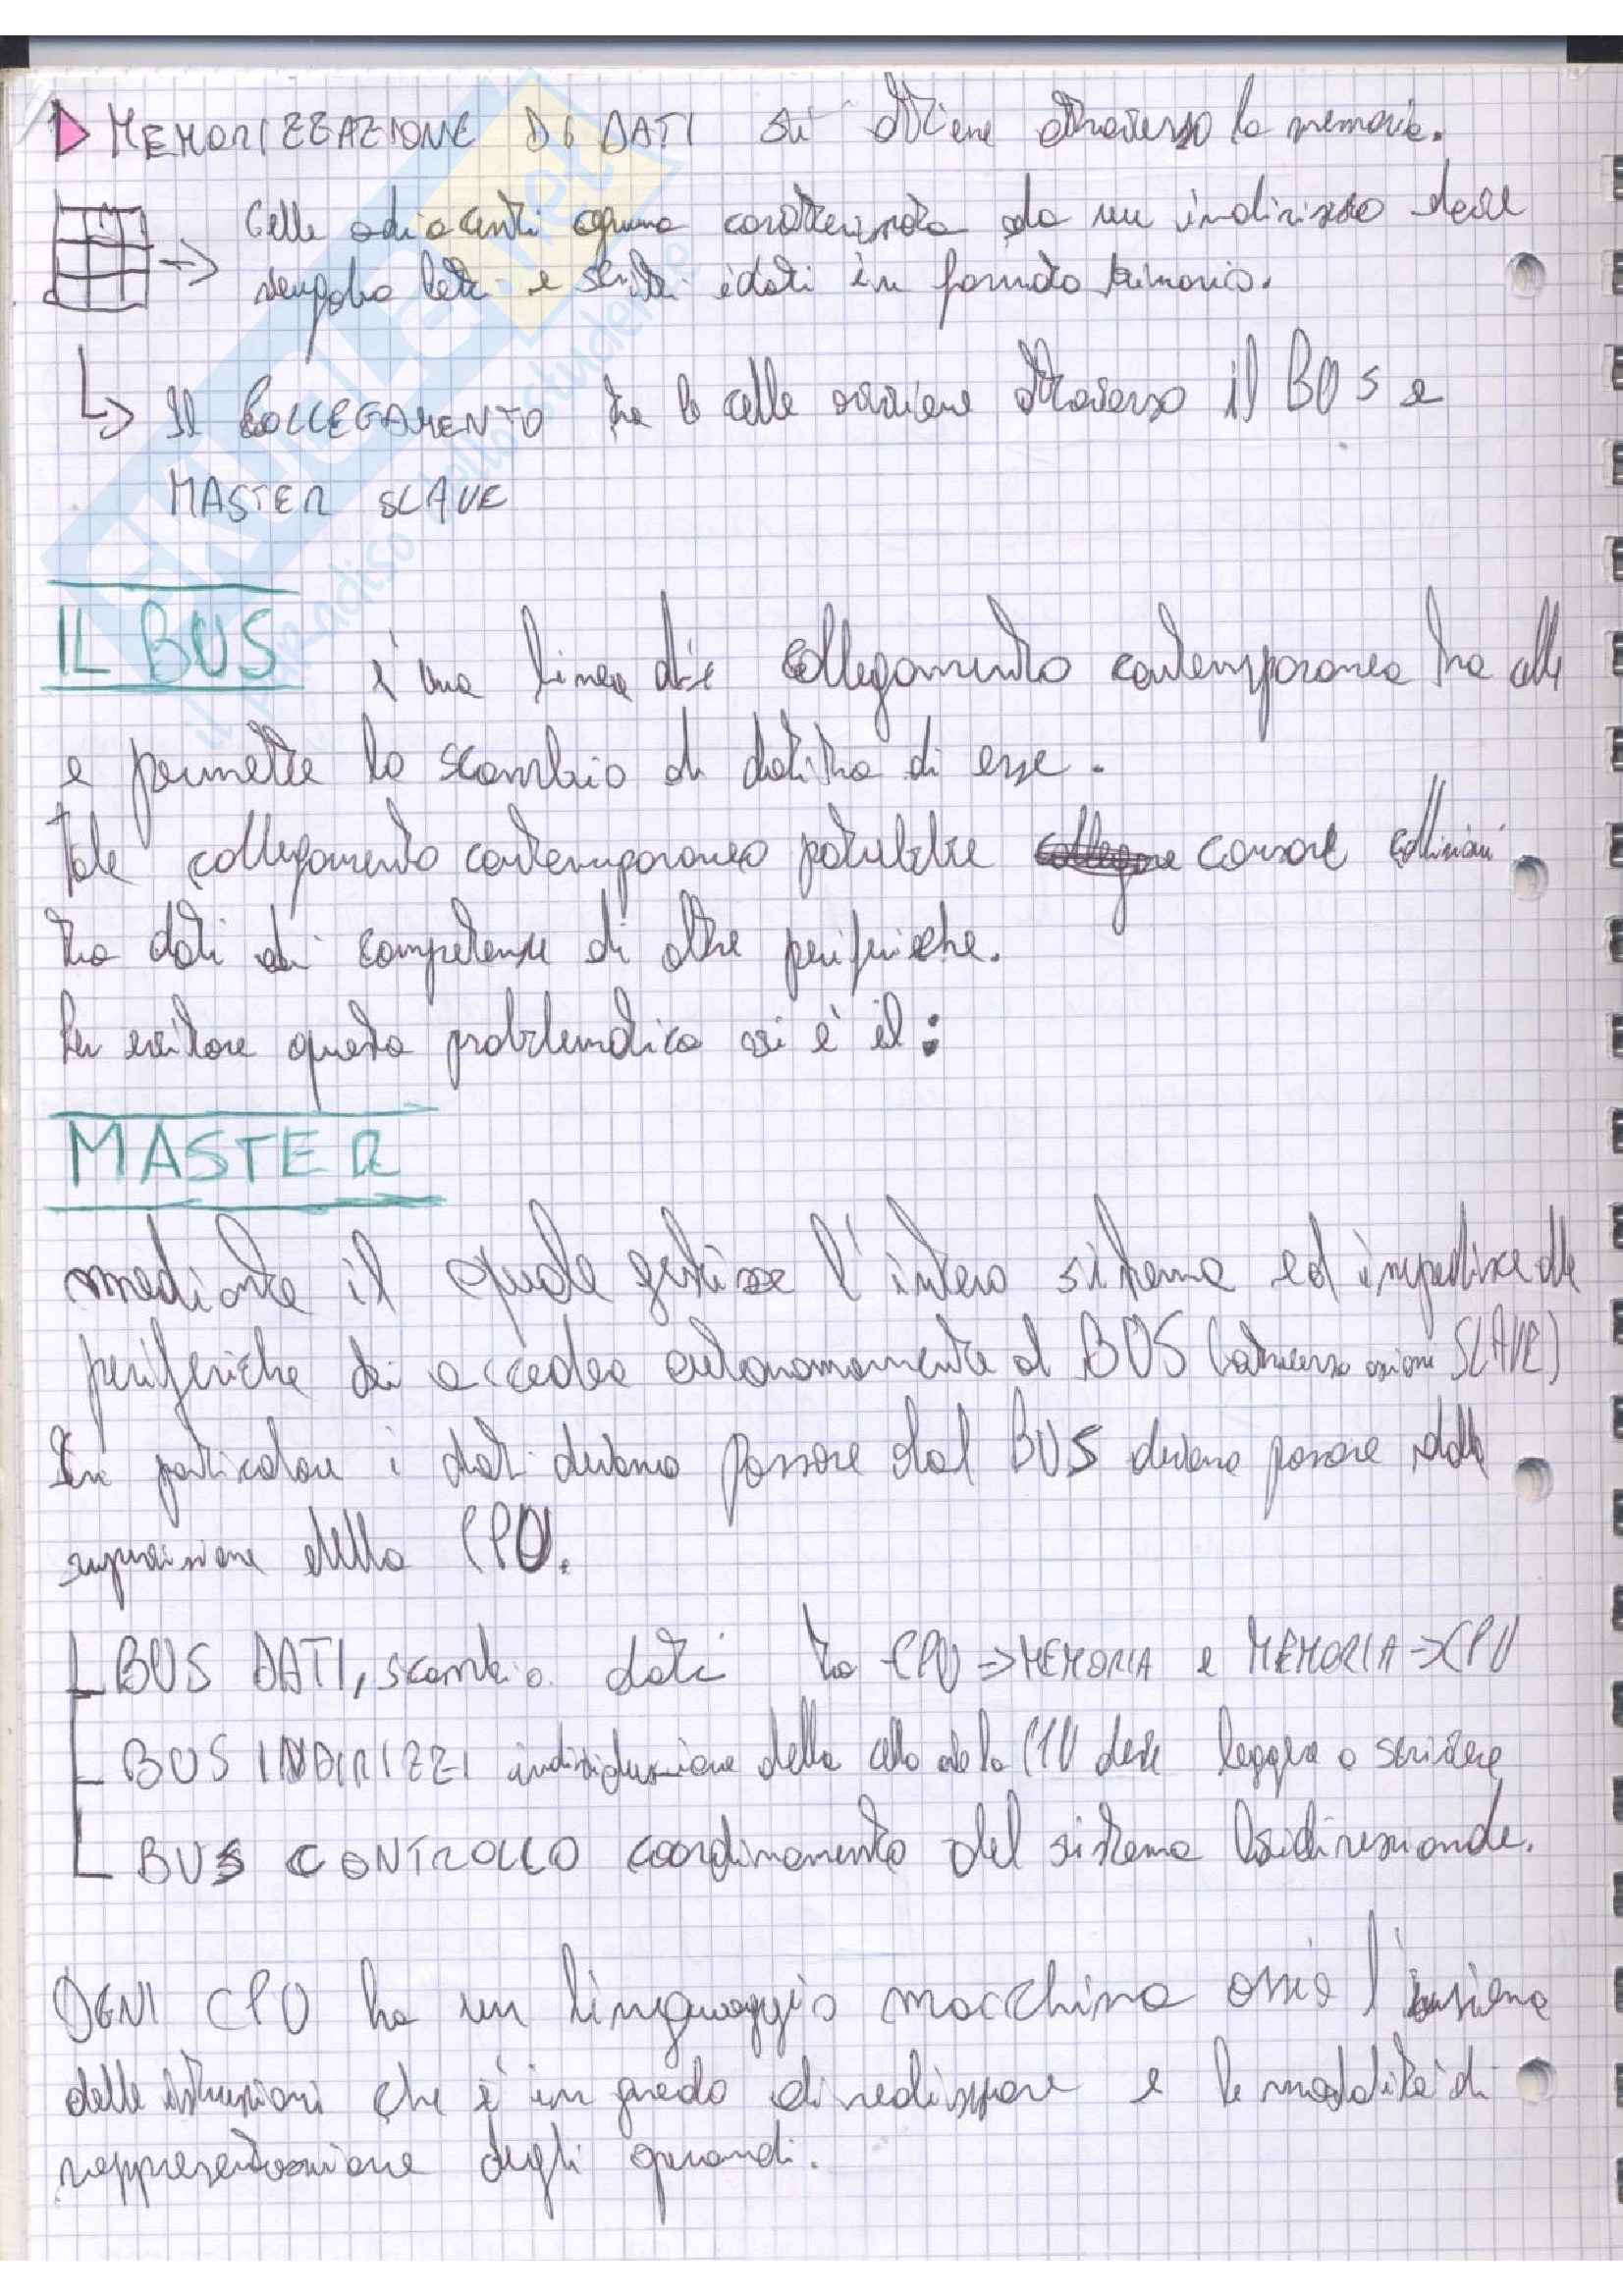 MEMORIZZAZIONE DI DATI si ottiene attraverso la memoria.
Celle adiacenti ognuna caratterizzata da un indirizzo dove
vengono letti e scritti i dati in formato binario.
Il COLLEGAMENTO tra le celle avviene attraverso il BUS e
MASTER SLAVE
IL BUS è una linea di collegamento contemporanea tra celle
e permette lo scambio di dati tra di esse.
Tale collegamento contemporaneo potrebbe causare collisioni
tra dati di competenze di altre periferiche.
Per evitare questa problematica vi è il:
MASTER
mediante il quale gestisce l'intero sistema ed impedisce alle
periferiche di accedere autonomamente al BUS (attraverso azione SLAVE)
In particolare i dati devono passare dal BUS devono passare dalla
supervisione della CPU.
BUS DATI, scambio dati tra CPU => MEMORIA e MEMORIA -> CPU
BUS INDIRIZZI individuazione della cella che la CPU deve leggere o scrivere
BUS CONTROLLO coordinamento del sistema bidirezionale.
OGNI CPU ha un linguaggio macchina ossia l'insieme
delle istruzioni che è in grado di e le modalità di
rappresentazione degli operandi.